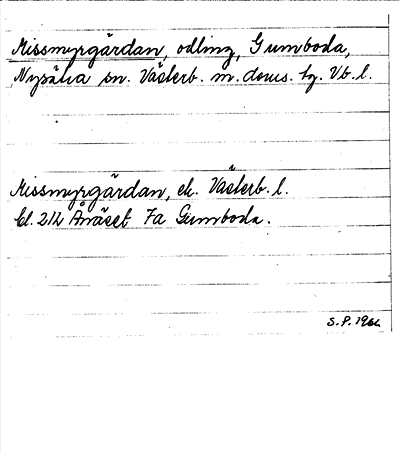 Missmyrgärdan, odling, Gumboda,
Nysätra sn. Västerb. m. doms. tg. Vb. l.
Missmyrgärdan, ek. Västerb. l.
bl. 212 Ånäset 7a Gumboda.
S.P. 19